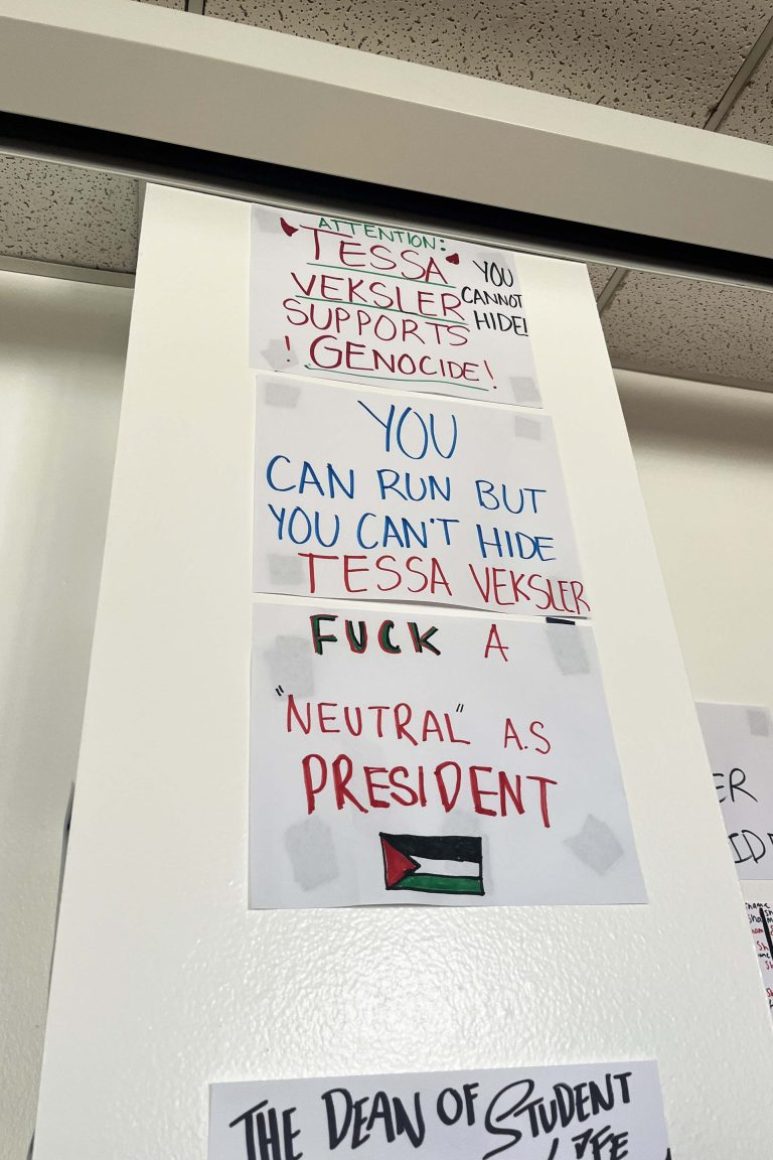 ATTENTION:
TESSA
VEKSLER
SUPPORTS
! GENOCIDE!
YOU
CANNOT
HIDE!
YOU
CAN RUN BUT
YOU CAN'T HIDE
TESSA VEKSLER
FUCK A
"NEUTRAL" A.S
PRESIDENT
THE DEAN OF STUDENT
LIFE
ER